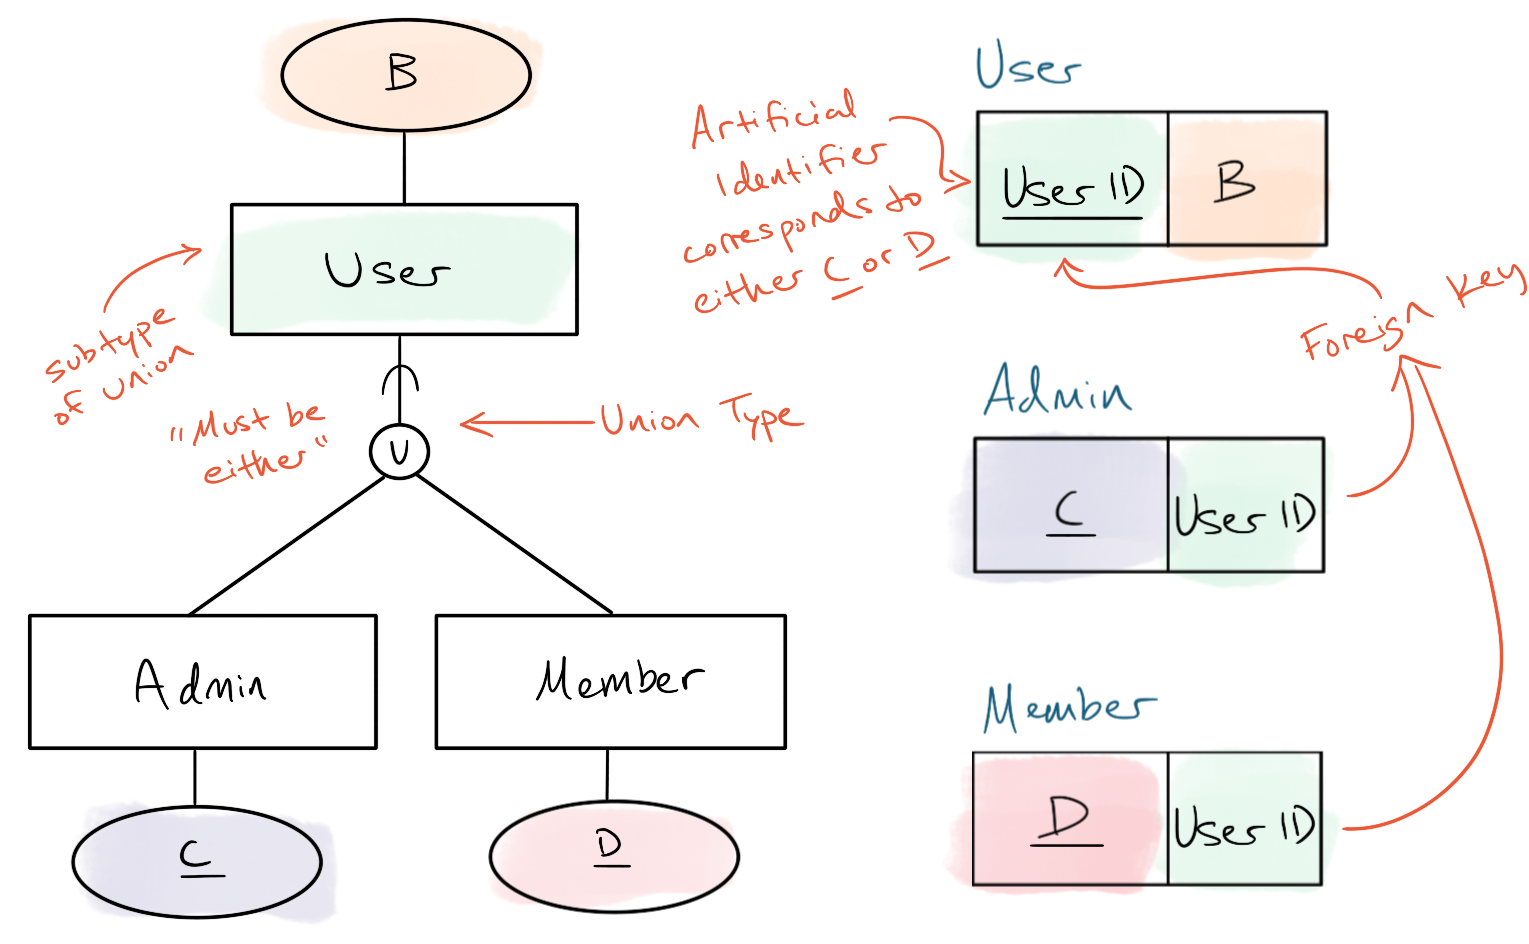 B
User
subtype
of union
"Must be
either"
Union Type
U
Admin
Member
C
D
Artificial
Identifier
corresponds to
either C or D
User
User ID
B
Foreign Key
Admin
C
User ID
Member
D
User ID